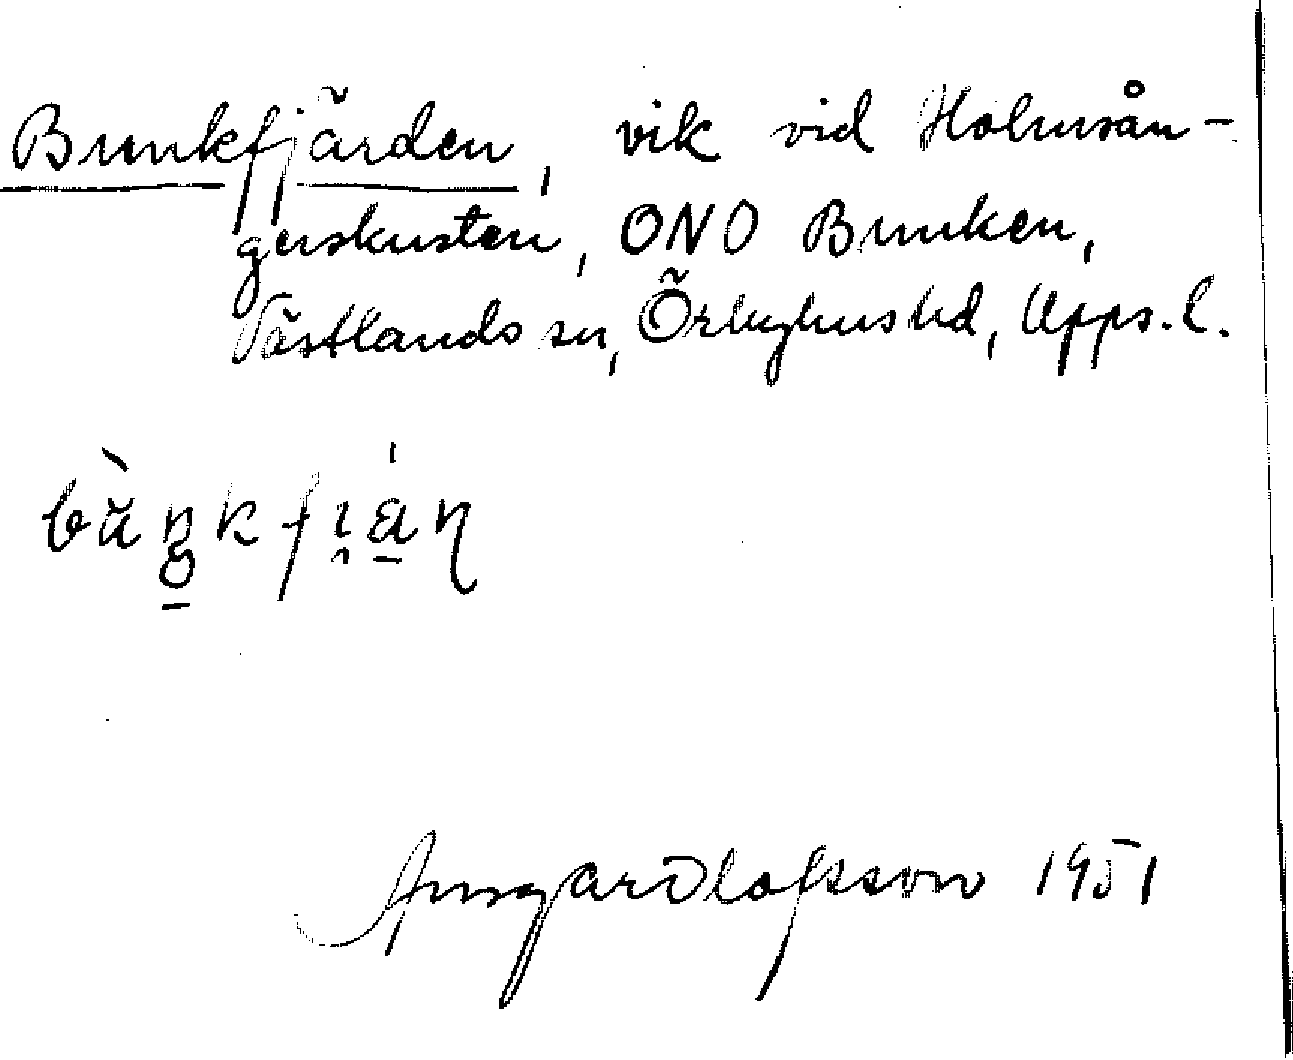 Bunkfjärden, vik vid Holmsån-
gerskusten, ONO Bunken,
Västlands sn, Örbyhus hd, Upps. l.
Ansgar Olofsson 1951